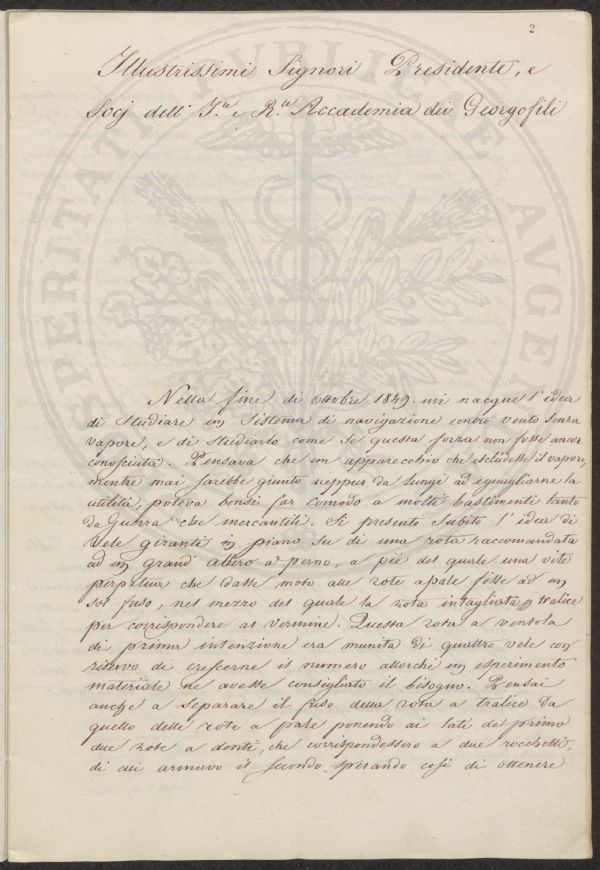 2
Illustrissimi Signori Presidente, e
Socj dell' I.le e R.le Accademia dei Georgofili
PERITATI PVBLICAE AVGE
Nella fine di ottobre 1849. mi nacque l'idea
di studiare un sistema di navigazione contro vento senza
vapore, e di studiarlo come se questa forza non fosse ancor
conosciuta. Pensava che un apparecchio che escludesse il vapore,
mentre mai sarebbe giunto neppur da lungi ad eguagliarne la
utilità, poteva bensì far comodo a molti bastimenti tanto
da guerra che mercantili. Si presentò subito l'idea di
Vele giranti in piano su di una rota raccomandata
ad un grand' albero a perno, a piè del quale una vite
perpetua che dasse moto alle rote a pale fisse ad un
sol fuso, nel mezzo del quale la rota intagliata a tralice
per corrispondere al vermine. Questa rota a ventola
di prima intenzione era munita di quattro vele con
riservo di crescerne il numero allorchè un esperimento
materiale ne avesse consigliato il bisogno. Pensai
anche a separare il fuso della rota a tralice da
quello delle rote a pale ponendo ai lati del primo
due rote a denti, che corrispondessero a due rocchetti,
di cui armavo il secondo sperando così di ottenere